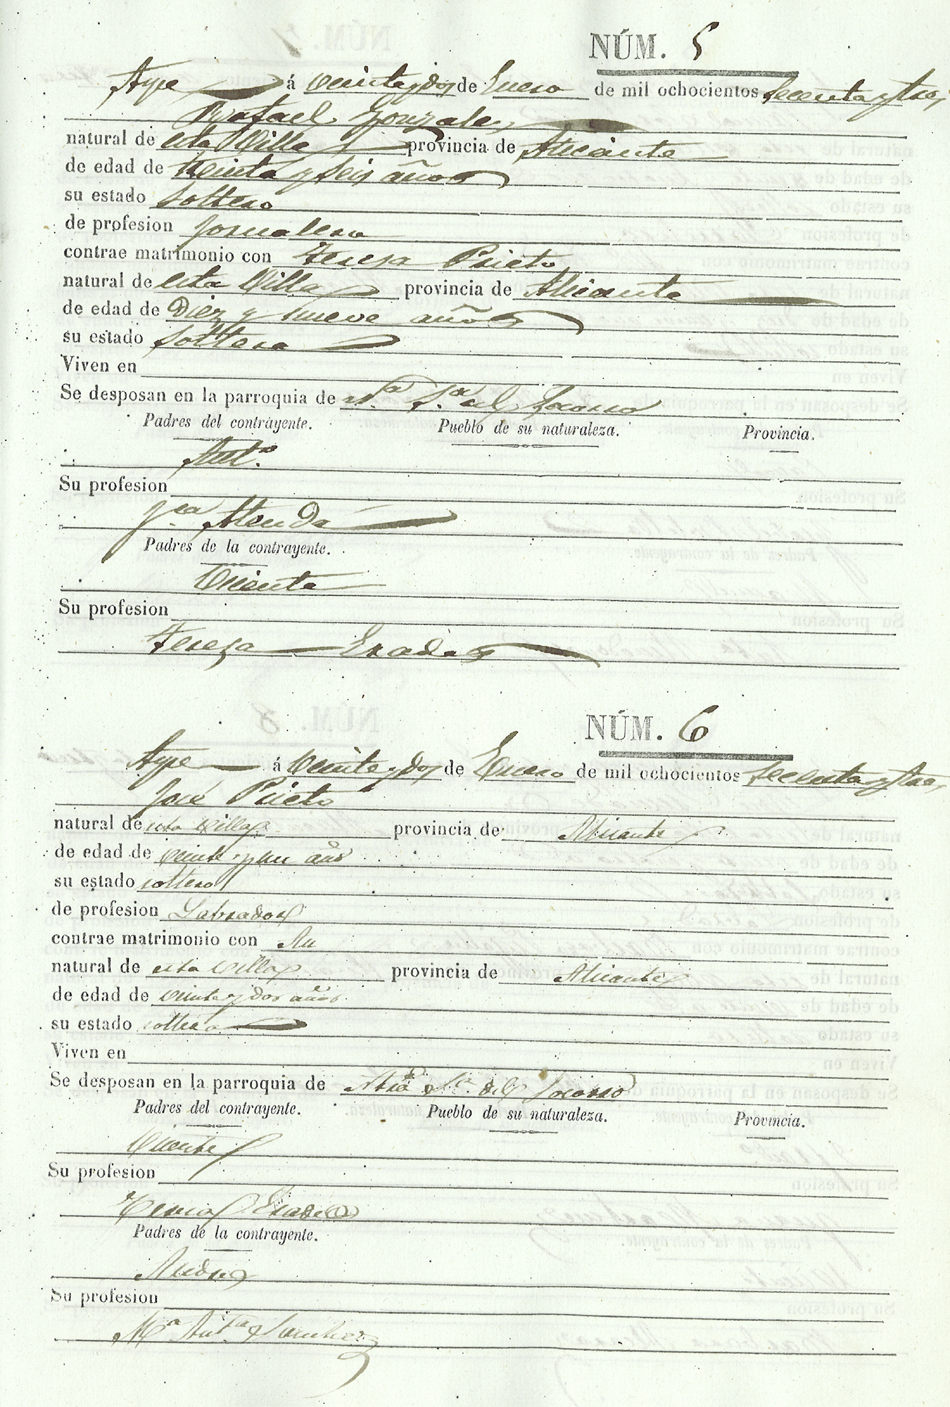 NÚM. 5
Aspe á veinte y dos de Enero de mil ochocientos sesenta y tres,
Rafael Gonzalez
natural de esta Villa provincia de Alicante
de edad de treinta y seis años
su estado soltero
de profesion Jornalero
contrae matrimonio con Teresa Prieto
natural de esta Villa provincia de Alicante
de edad de Diez y nueve años
su estado soltera
Viven en
Se desposan en la parroquia de Nª Sª del Socorro
Padres del contrayente. Pueblo de su naturaleza. Provincia.
Antº
Su profesion
Padres de la contrayente.
Vicente
Su profesion
Teresa
NÚM. 6
Aspe á veinte y dos de Enero de mil ochocientos sesenta y tres,
José Prieto
natural de esta villa provincia de Alicante
de edad de veinte y un años
su estado soltero
de profesion Labrador
contrae matrimonio con
natural de esta villa provincia de Alicante
de edad de veinte y dos años
su estado soltera
Viven en
Se desposan en la parroquia de Ntra Sra del Socorro
Padres del contrayente. Pueblo de su naturaleza. Provincia.
Vicente
Su profesion
Teresa
Padres de la contrayente.
Andres
Su profesion
Mª Antª Sanchez